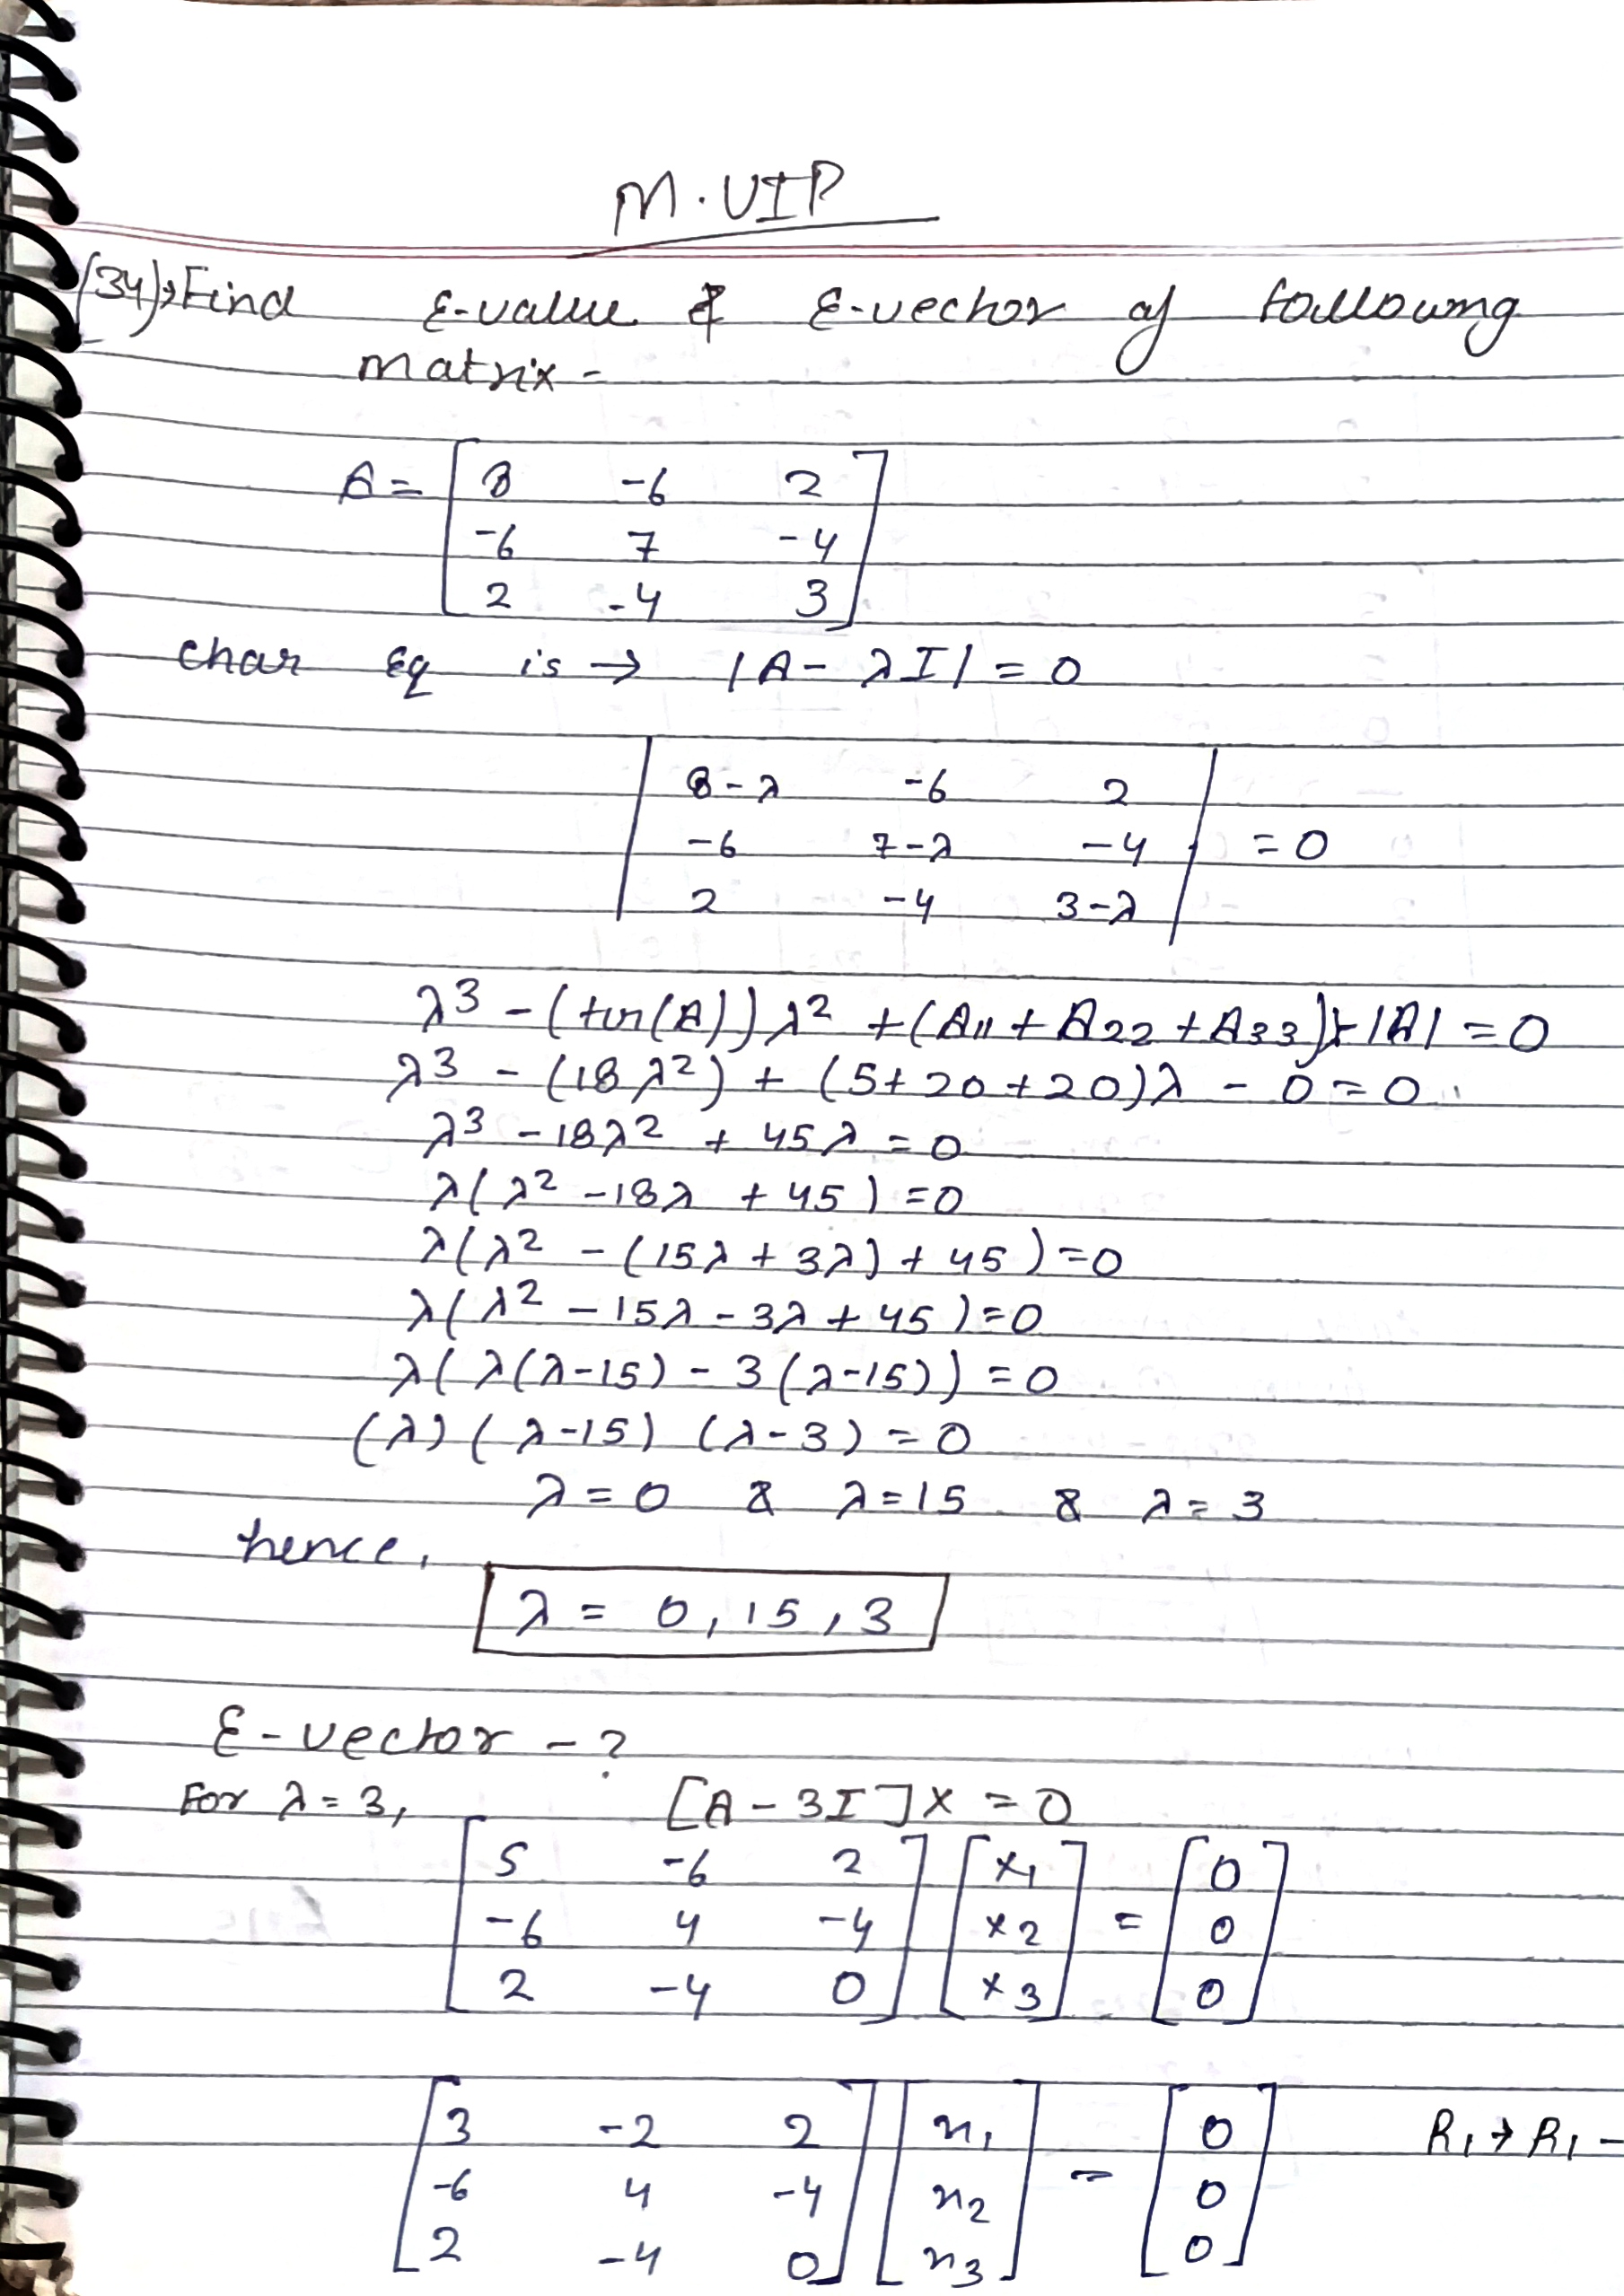 M.VIP
(34)→ Find E-value & E-vector of following
matrix -
A = [8 -6 2
-6 7 -4
2 -4 3]
char Eq is → |A - λI| = 0
|8-λ -6 2|
|-6 7-λ -4| = 0
|2 -4 3-λ|
λ³ - (tr(A))λ² + (A11 + A22 + A33)λ - |A| = 0
λ³ - (18λ²) + (5+20+20)λ - 0 = 0
λ³ - 18λ² + 45λ = 0
λ(λ² - 18λ + 45) = 0
λ(λ² - (15λ + 3λ) + 45) = 0
λ(λ² - 15λ - 3λ + 45) = 0
λ(λ(λ-15) - 3(λ-15)) = 0
(λ)(λ-15)(λ-3) = 0
λ = 0 & λ = 15 & λ = 3
hence,
λ = 0, 15, 3
E-vector - ?
For λ = 3, [A - 3I]X = 0
[5 -6 2] [x1] [0]
[-6 4 -4] [x2] = [0]
[2 -4 0] [x3] [0]
[3 -2 2] [x1] [0] R1 → R1 -
[-6 4 -4] [x2] = [0]
[2 -4 0] [x3] [0]